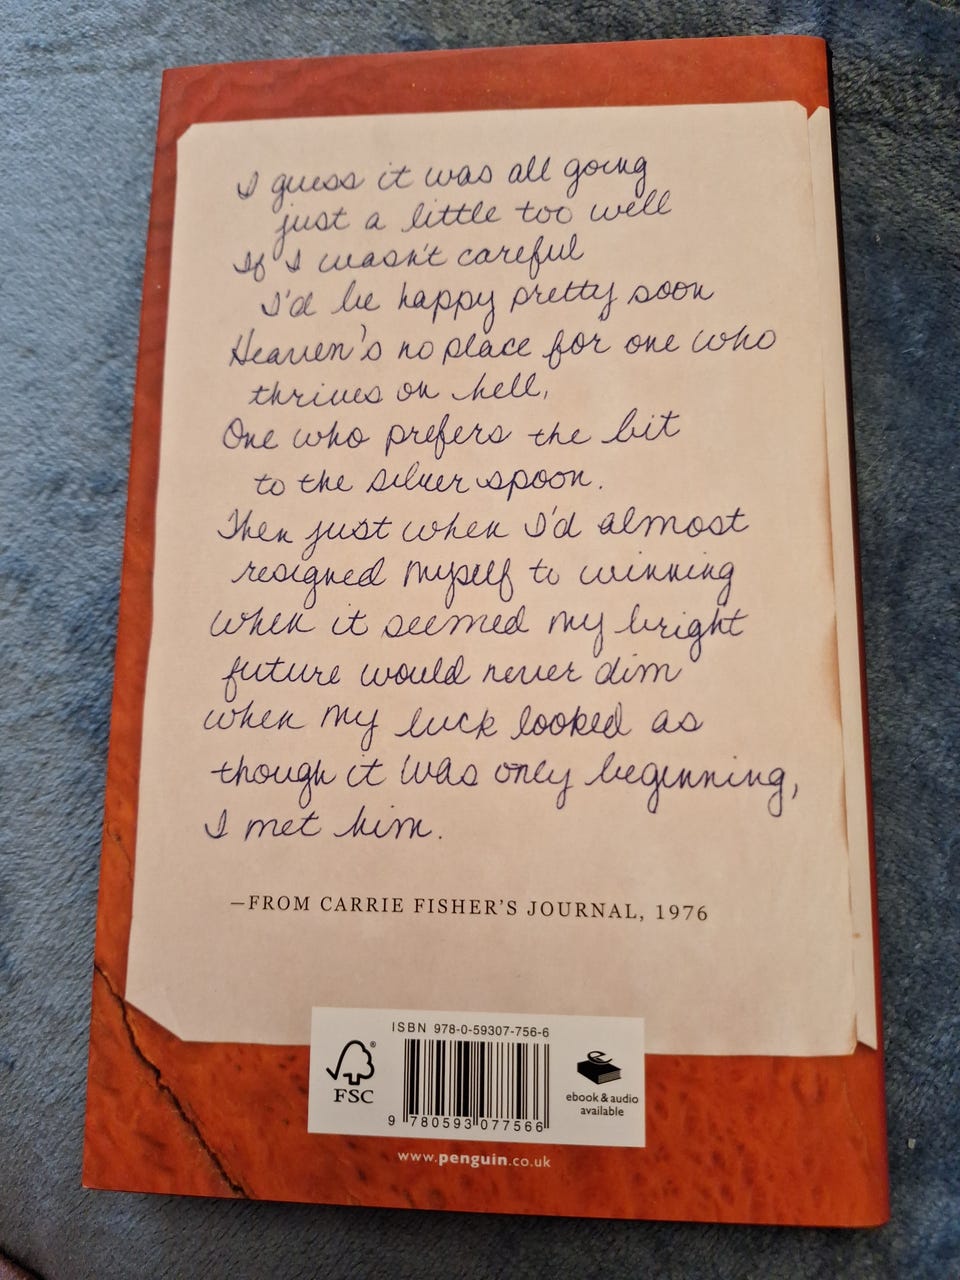 I guess it was all going
just a little too well
If I wasn't careful
I'd be happy pretty soon
Heaven's no place for one who
thrives on hell,
One who prefers the bit
to the silver spoon.
Then just when I'd almost
resigned myself to winning
when it seemed my bright
future would never dim
when my luck looked as
though it was only beginning,
I met him.
—FROM CARRIE FISHER'S JOURNAL, 1976
ISBN 978-0-59307-756-6
FSC®
9 780593 077566
ebook & audio
available
www.penguin.co.uk